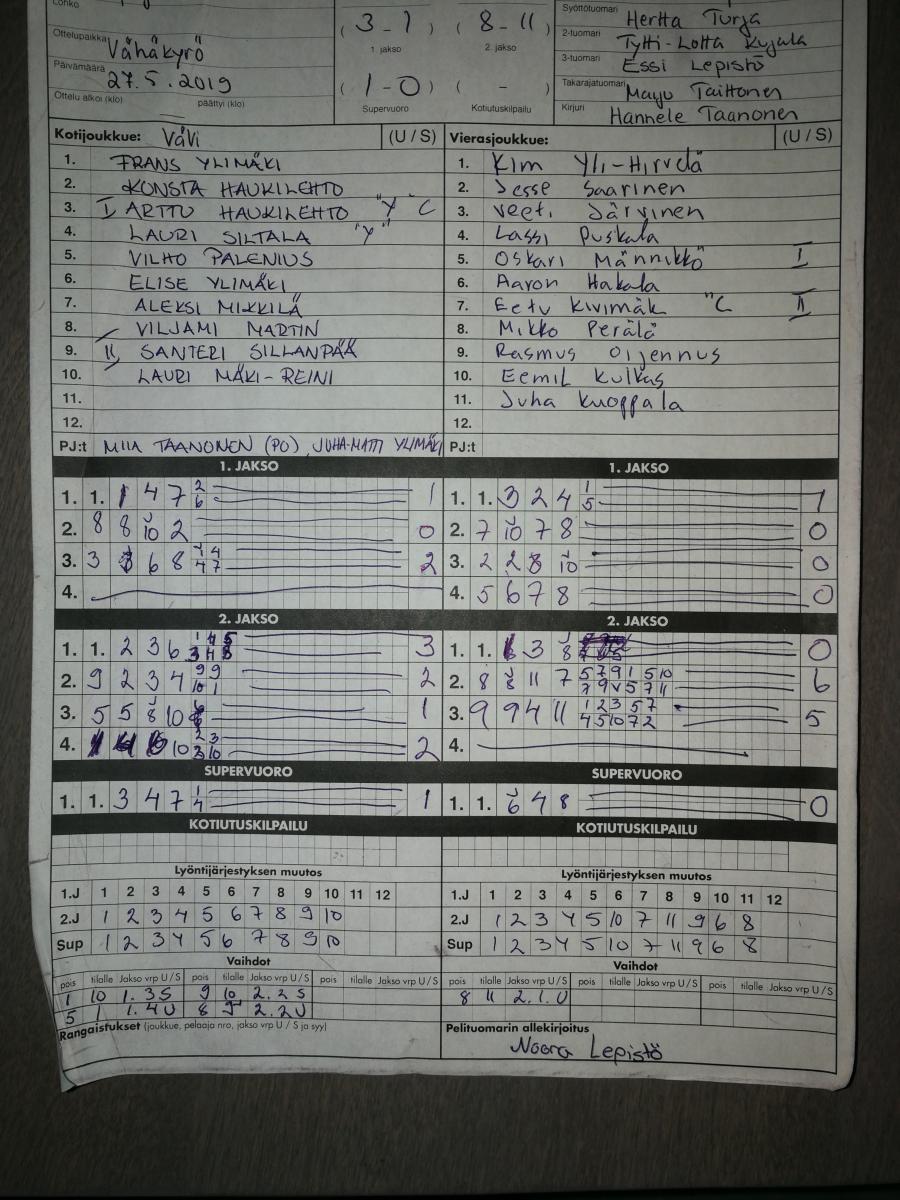 Lohko
Ottelupaikka Vähäkyrö
Päivämäärä 27.5.2019
Ottelu alkoi (klo) päättyi (klo)
(3-1) (8-11)
1. jakso 2. jakso
(1-0) ( - )
Supervuoro Kotiutuskilpailu
Syöttötuomari Hertta Turja
2-tuomari Tytti-Lotta Kujala
3-tuomari Essi Lepistö
Takarajatuomari Maiju Taittonen
Kirjuri Hannele Taanonen
Kotijoukkue: VäVi (U / S)
1. FRANS YLIMÄKI
2. KONSTA HAUKILEHTO
3. I ARTTU HAUKILEHTO "Y" C
4. LAURI SILTALA "Y"
5. VILHO PALENIUS
6. ELISE YLIMÄKI
7. ALEKSI MIKKILÄ
8. VILJAMI MARTIN
9. II SANTERI SILLANPÄÄ
10. LAURI MÄKI-REINI
11.
12.
PJ:t MIIA TAANONEN (PO), JUHA-MATTI YLIMÄKI
Vierasjoukkue: (U / S)
1. Kim Yli-Hirvelä
2. Jesse Saarinen
3. Veeti Järvinen
4. Lassi Puskala
5. Oskari Männikkö I
6. Aaron Hakala
7. Eetu Kivimäk "C II
8. Mikko Perälä
9. Rasmus Oijennus
10. Eemil Kulkas
11. Juha Kuoppala
12.
PJ:t
1. JAKSO
1. 1. 1 4 7 2 6 1
2. 8 8 10 2 0
3. 3 6 8 2
4.
1. JAKSO
1. 1. 3 2 4 1 5 1
2. 7 10 7 8 0
3. 2 2 8 10 0
4. 5 6 7 8 0
2. JAKSO
1. 1. 2 3 6 3
2. 9 2 3 4 9 9 10 1 2
3. 5 5 8 10 1
4. 10 2
2. JAKSO
1. 1. 3 8 0
2. 8 8 11 7 6
3. 9 9 4 11 1 2 3 5 7 4 5 10 7 2 5
4.
SUPERVUORO
1. 1. 3 4 7 1 4 1
SUPERVUORO
1. 1. 6 4 8 0
KOTIUTUSKILPAILU
KOTIUTUSKILPAILU
Lyöntijärjestyksen muutos
1.J 1 2 3 4 5 6 7 8 9 10 11 12
2.J 1 2 3 4 5 6 7 8 9 10
Sup 1 2 3 4 5 6 7 8 9 10
Lyöntijärjestyksen muutos
1.J 1 2 3 4 5 6 7 8 9 10 11 12
2.J 1 2 3 4 5 10 7 11 9 6 8
Sup 1 2 3 4 5 10 7 11 9 6 8
Vaihdot
pois tilalle Jakso vrp U / S pois tilalle Jakso vrp U / S pois tilalle Jakso vrp U / S
1 10 1.3S 9 10 2.2S
5 1 1.4U 8 9 2.2U
Vaihdot
pois tilalle Jakso vrp U / S pois tilalle Jakso vrp U / S pois tilalle Jakso vrp U / S
8 11 2.1.U
Rangaistukset (joukkue, pelaaja nro, jakso vrp U / S ja syy)
Pelituomarin allekirjoitus
Noora Lepistö